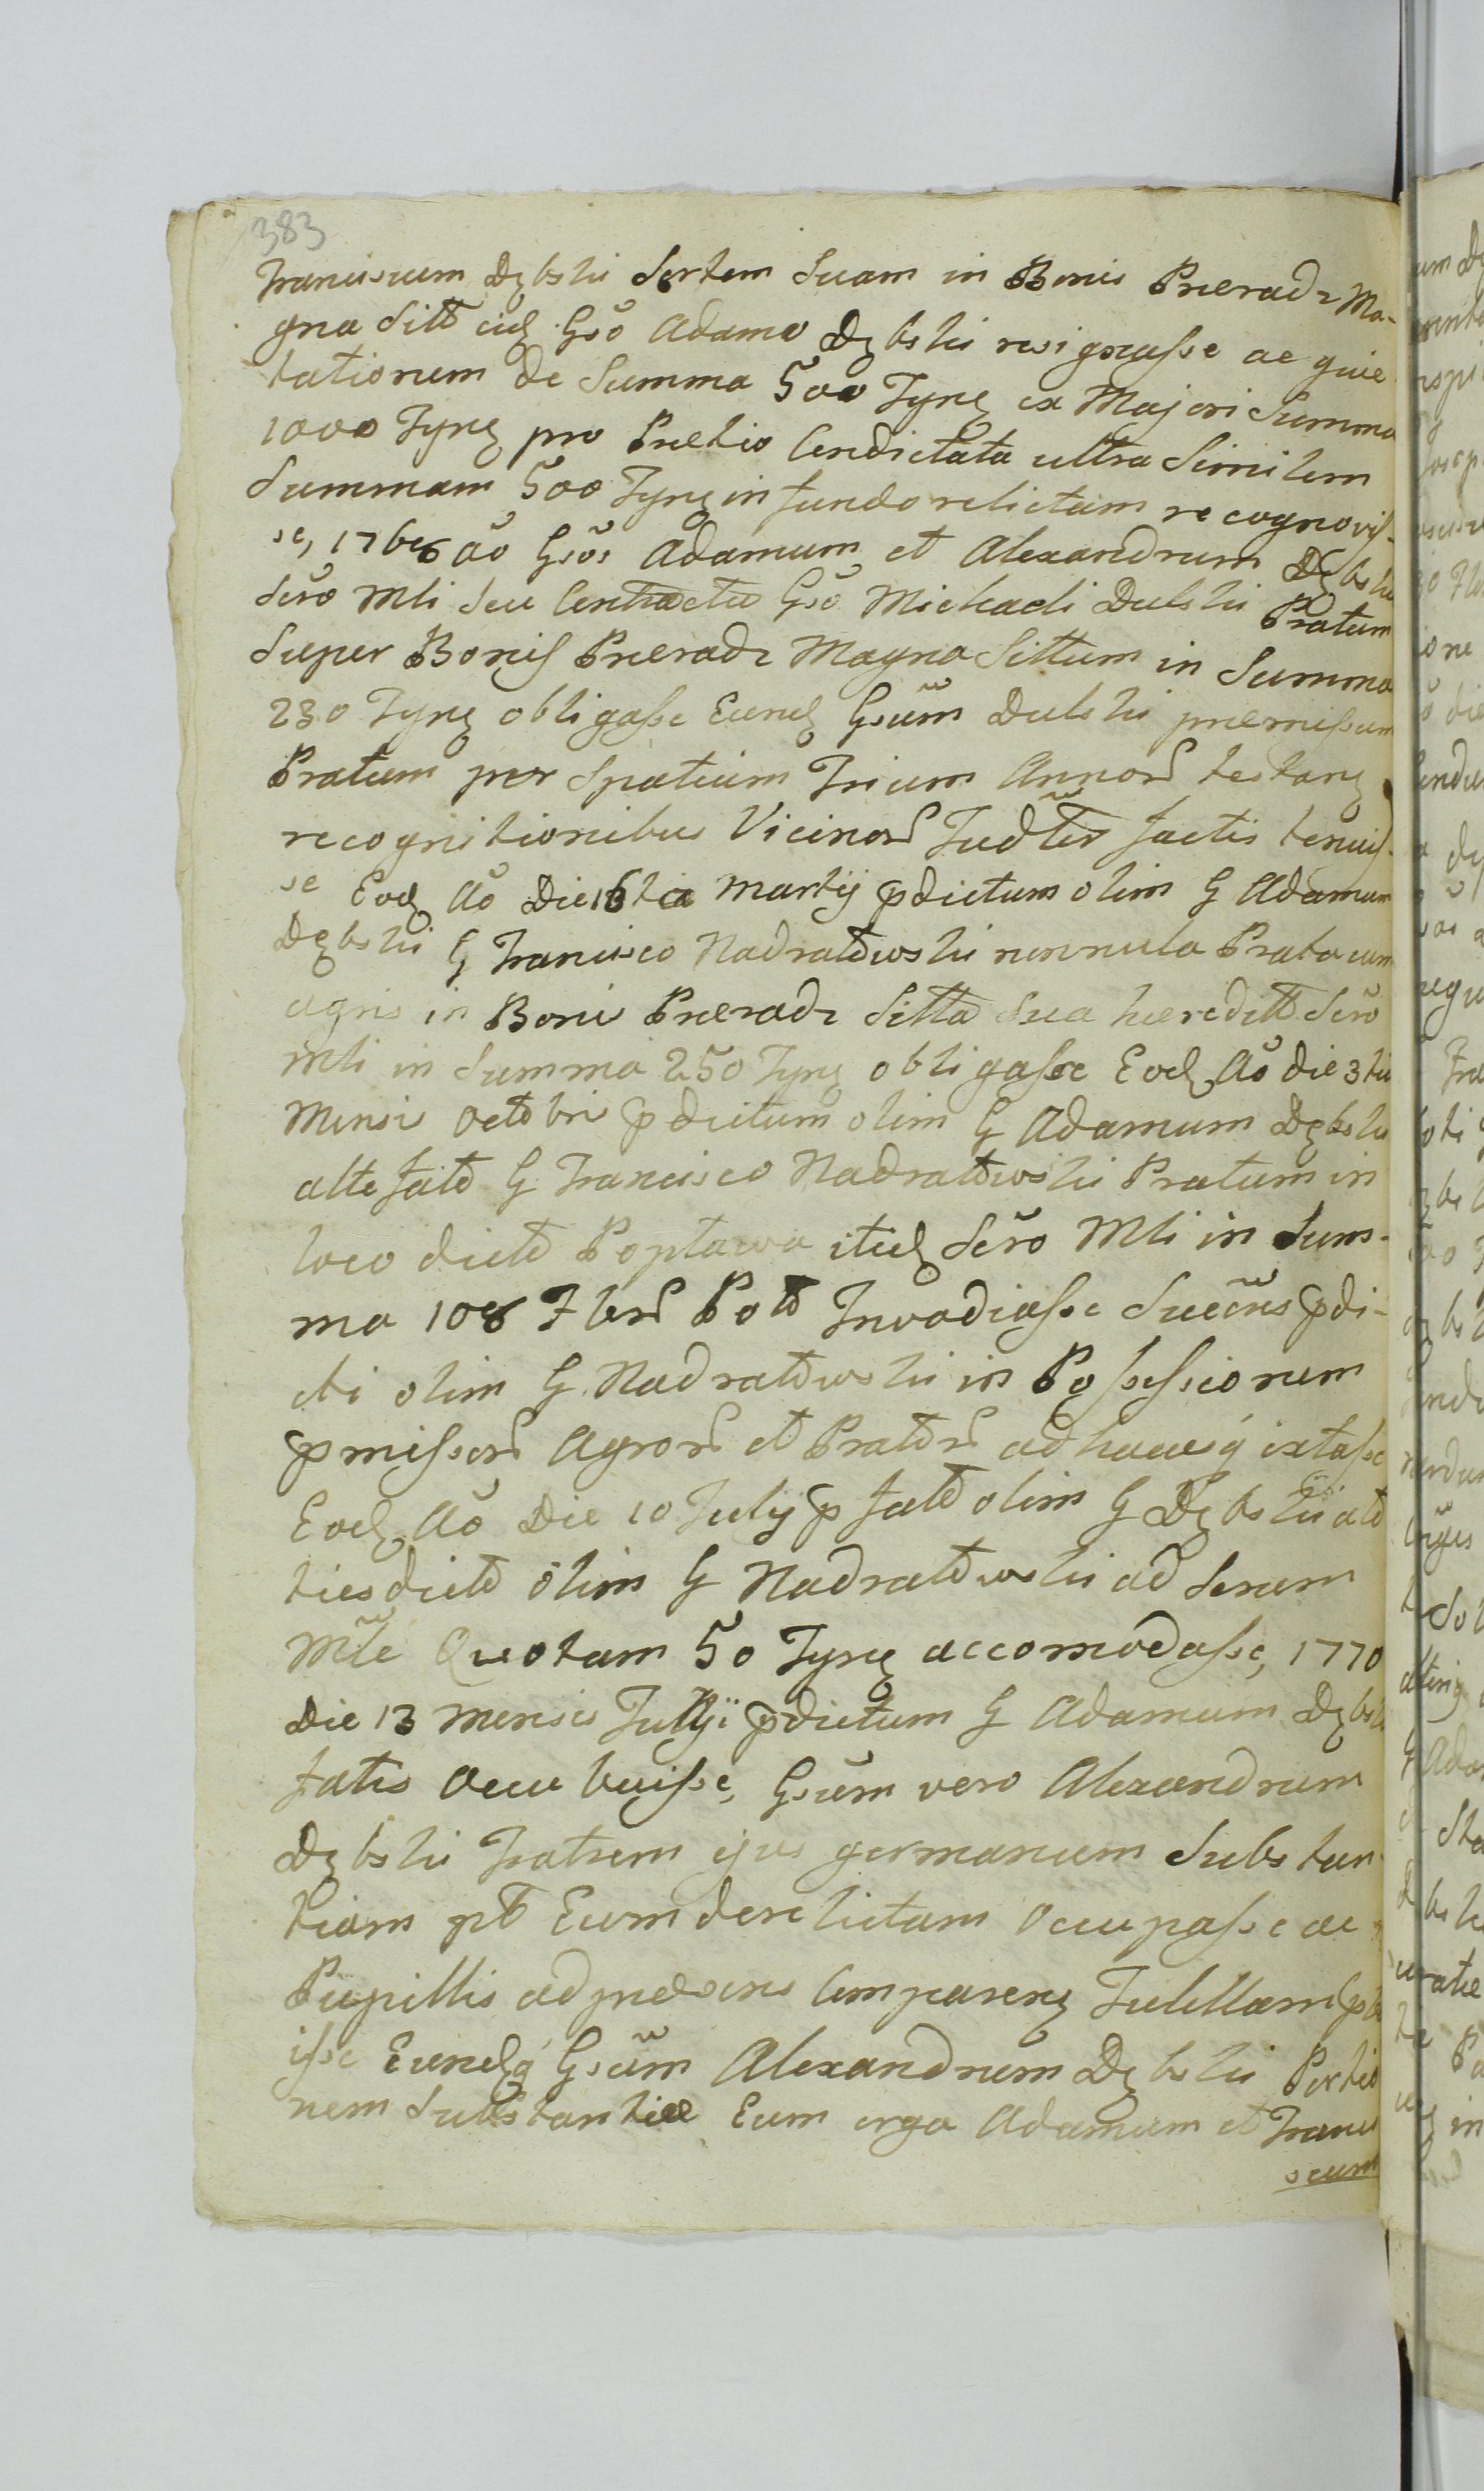 383
Franciscum Dębski Sortem Suam in Bonis Prerady Ma-
gna Sitt eid Gso Adamo Dębski resignasse ac quie
tationem de Summa 500 Tynf ex Majori Summa
1000 Tynf pro Pretio Condictata ultra Similem
Summam 500 Tynf in fundo relictam recognovis-
se, 1766 ao Gsos Adamum et Alexandrum Dębski
Scro Mli Seu Contractu Gso Michaeli Dulski Pratum
Super Bonis Prerady Magna Sittum in Summa
230 Tynf obligasse Eund Gsum Dulski præmissum
Pratum per Spatium Trium Annor testan
recognitionibus Vicinor Judter factis tenuis-
se Eod Ao Die 16ta Martij pdictum olim G Adamum
Dębski G Francisco Nadratowski nonnula Prata cum
agris in Bonis Prerady Sitta Sua hæreditt Scro
Mli in Summa 250 Tynf obligasse Eod Ao die 3tia
Mensis Octobris pdictum olim G Adamum Dębski
alte fato G Francisco Nadratowski Pratum in
loco dicto Poptawa itid Scro Mli in Sum-
ma 108 Flor Pol Invadiasse Succres pdi-
cti olim G Nadratowski in Possessionem
pmissor Agror et Prator adhucq extasse
Eod Ao Die 10 July p fato olim G Dębski ato
ties dicto olim G Nadratowski ad Scrum
Mle Quotam 50 Tynf accomodasse, 1770
Die 13 Mensis Julÿ pdictum G Adamum Dębski
fatis Occubuisse, Gsum vero Alexandrum
Dębski Fratrem ejus germanum Substan-
tiam pt Eum derelictam Occupasse ac
Pupillis ad præsens Comparen Tutellam
isse Eundq Gsum Alexandrum Dębski Portio
nem Substantiæ Eum erga Adamum et Franci
scum